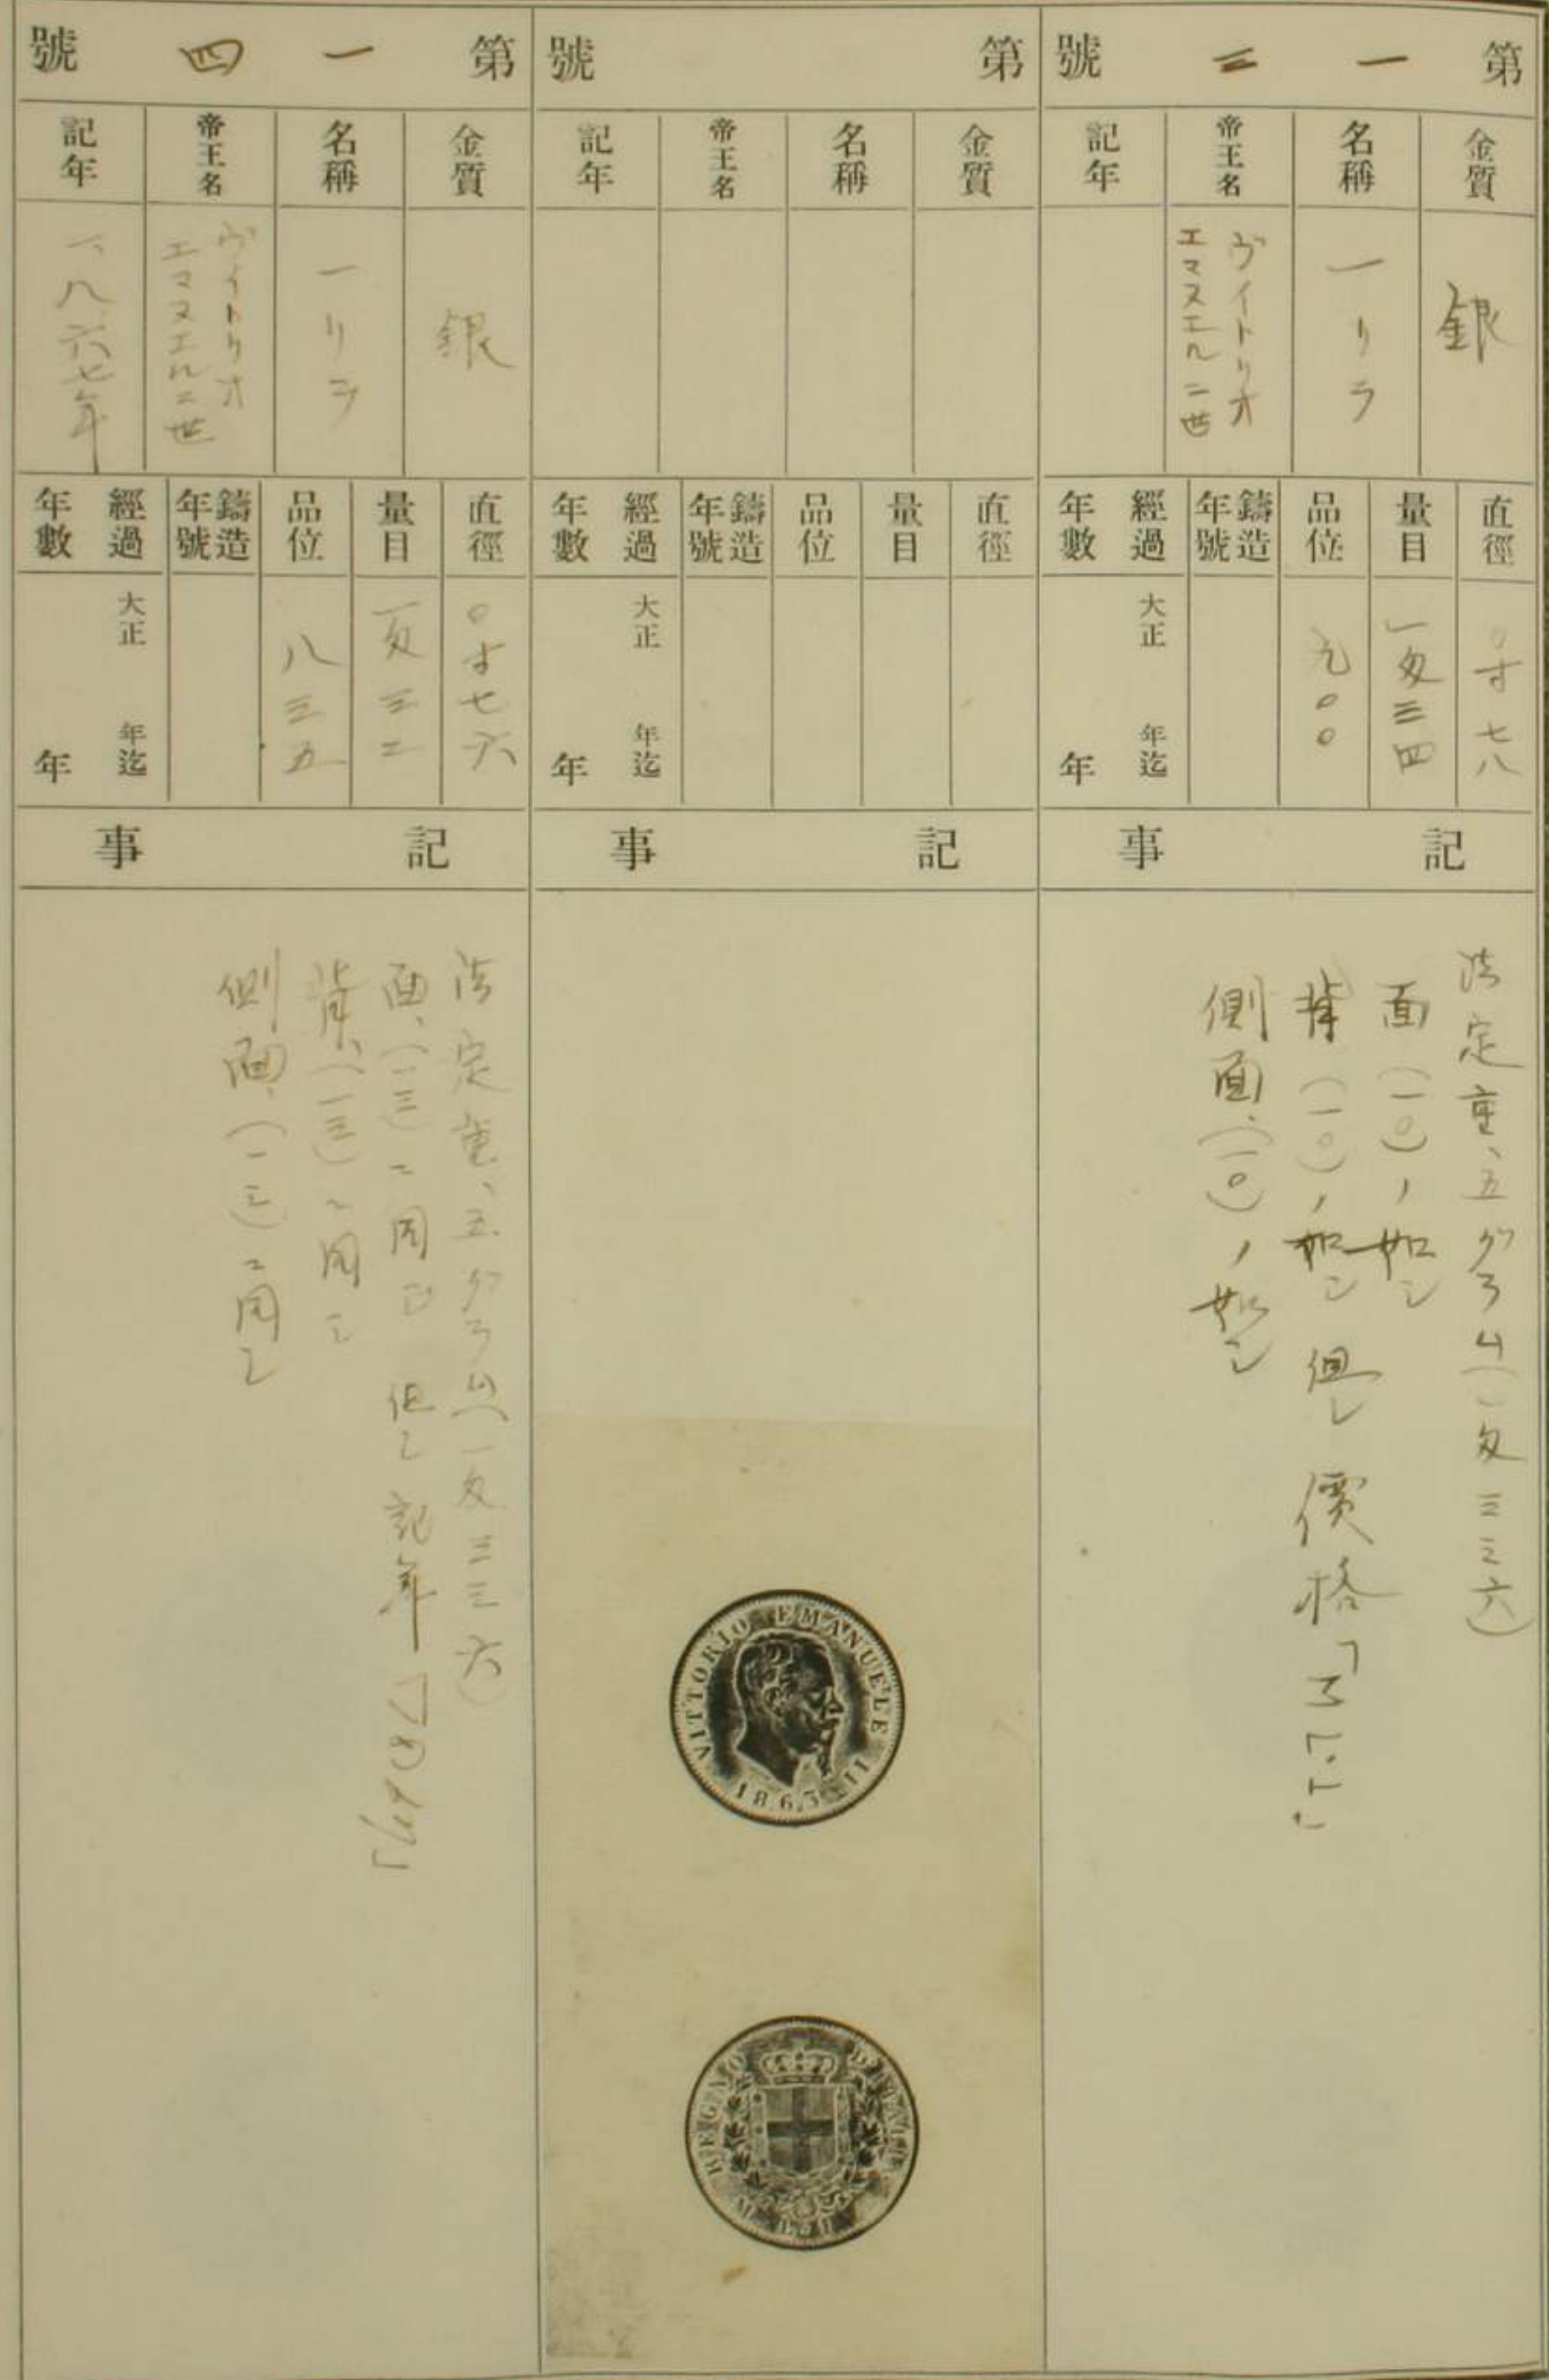 第一二號
金質
名稱
帝王名
記年
銀
一リラ
ヴイトリオ
エマヌエル二世
直徑
量目
品位
鑄造
年號
經過
年數
〇寸七八
一匁三四
九〇〇
大正 年迄
年
記事
法定量、五グラム(一匁三三六)
面(一〇)ノ如シ
背(一〇)ノ如シ但シ價格「L.1」
側面、(一〇)ノ如シ
第號
金質
名稱
帝王名
記年
直徑
量目
品位
鑄造
年號
經過
年數
大正 年迄
年
記事
VITTORIO EMANUELE II
1863
REGNO D'ITALIA
M L.1
第一四號
金質
名稱
帝王名
記年
銀
一リラ
ヴイトリオ
エマヌエル二世
一八六七年
直徑
量目
品位
鑄造
年號
經過
年數
〇寸七六
一匁三二
八三五
大正 年迄
年
記事
法定量、五グラム(一匁三三六)
面、(一三)ニ同シ 但シ記年「1867」
背、(一三)ニ同シ
側面、(一三)ニ同シ